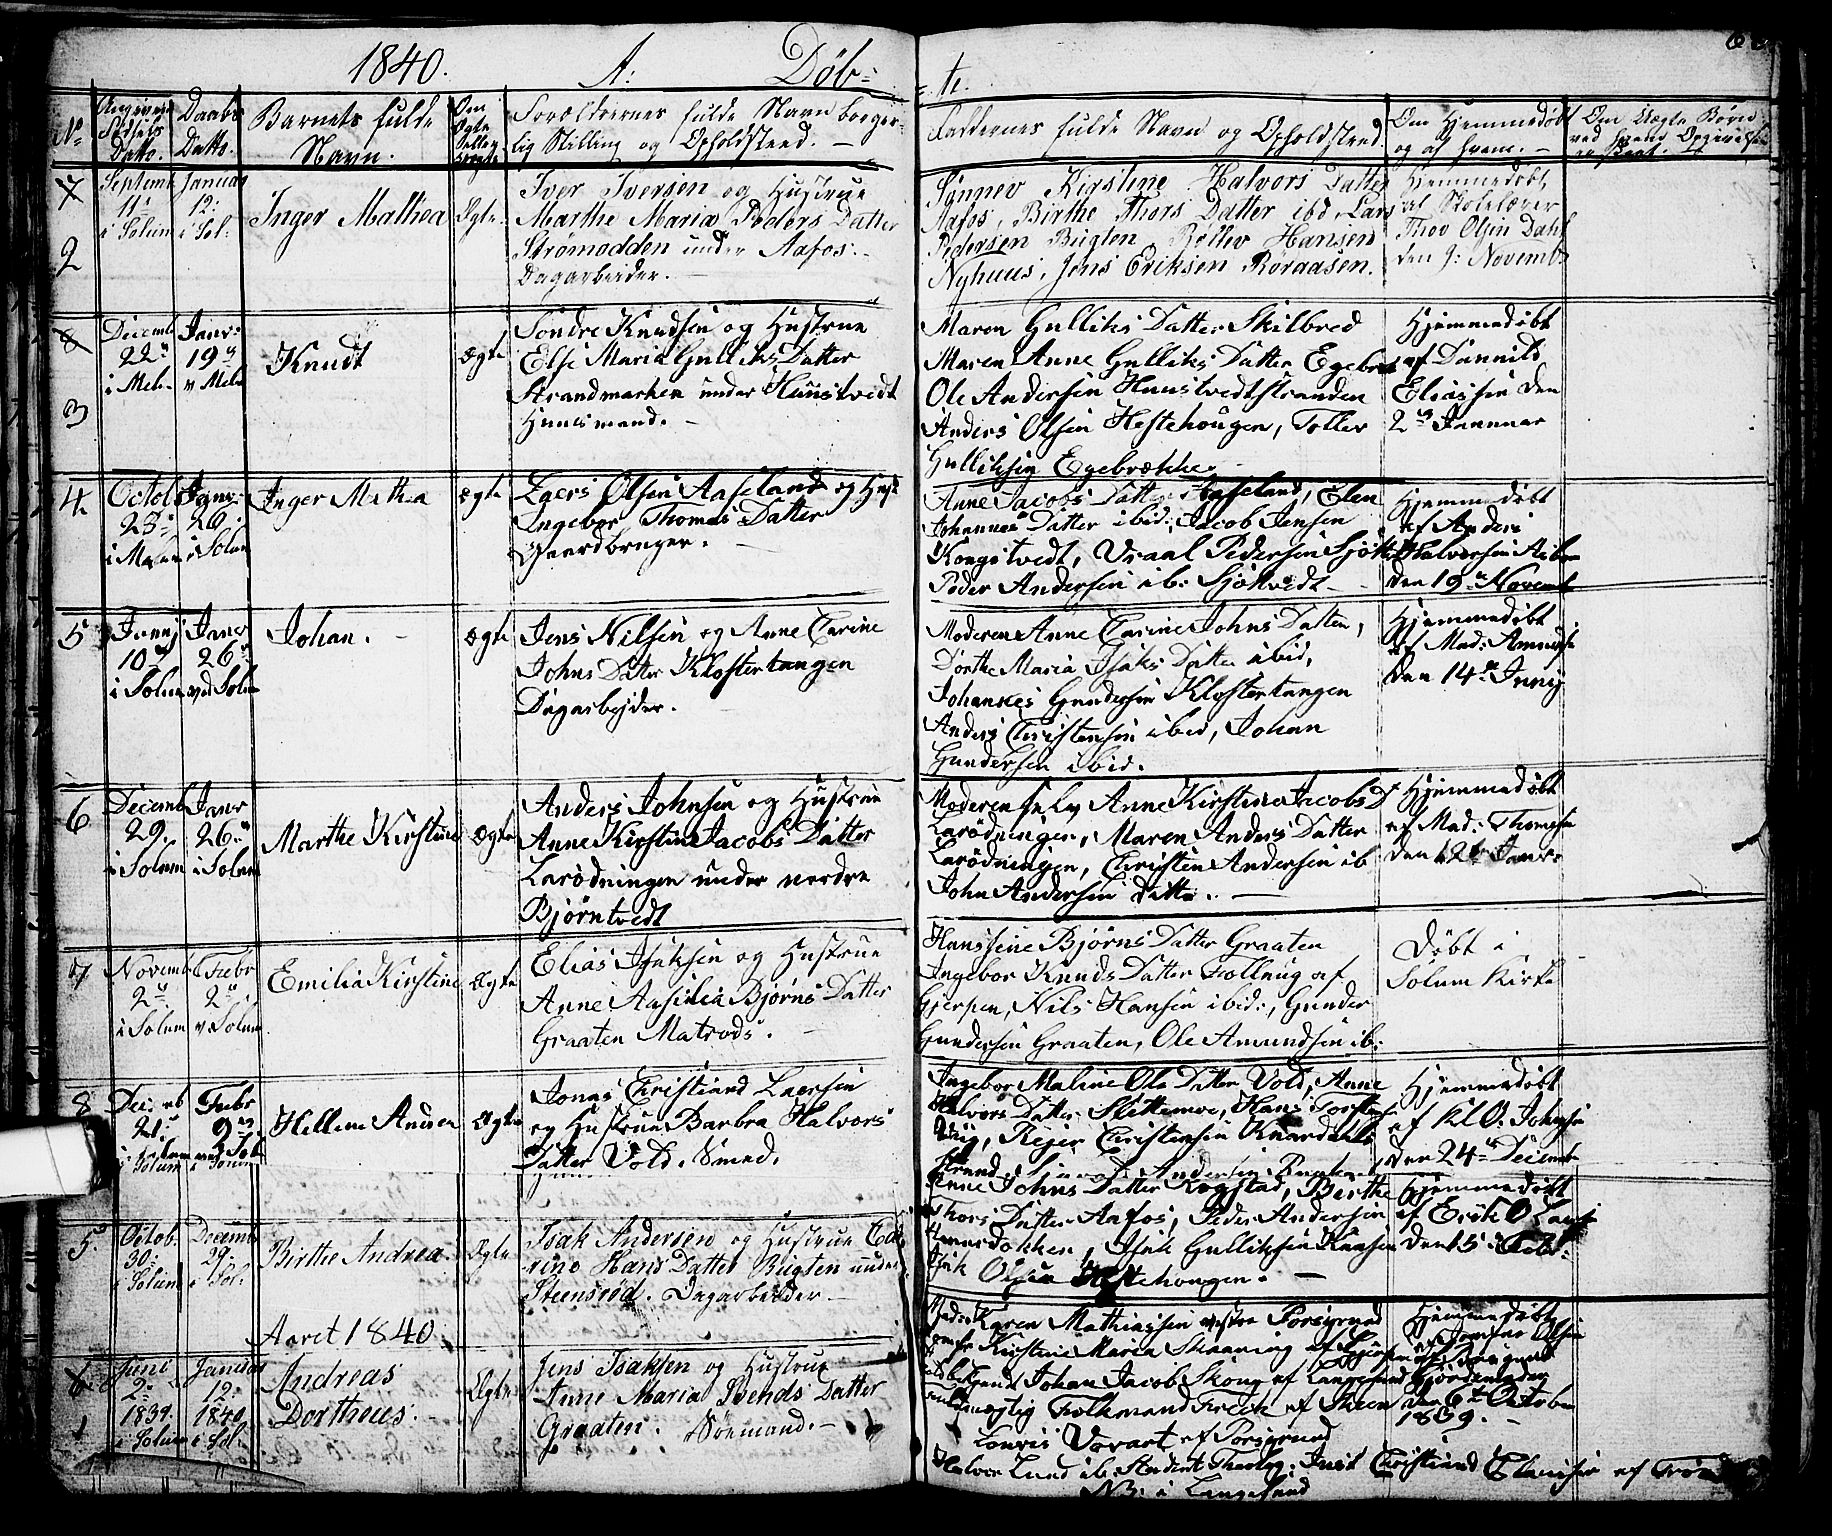 1840.
A:
Døb=
=te.
No
Angivne Fødsels Datto.
Daabs Datto.
Barnets fulde Navn.
Om Ægte eller uægte
Forældrernes fulde Navn borgerlig Stilling og Opholdsted. —
Faddernes fulde Navn og Opholdsted.
Om Hjemmedøbt og af hvem. —
Om Uægte Børn ved hvem Opgivelsen er skeet.
7
2
Septemb
11:
i Solum
Januar
12:
i Sol:
Inger Mathea
Ægte.
Iver Iversen og Hustrue
Marthe Maria Peders Datter
Strømodden under Aafos.
Dagarbeider. —
Synnev Kirstine Halvors Datter
Aafos, Birthe Thors Datter ibd, Lars
Pedersen Bugten, Rollev Hansen
Nyhuus, Jens Eriksen Røraasen.
Hjemmedøbt
af Skolelærer
Thov Olsin Dahl
den 9: Novemb
8
3
Decemb
22
i Mel.
Janr:
19
v Melu
Knudt
ægte
Søndre Knudsen og Hustrue
Else Maria Gulliks Datter
Strandmarken under Hunstvedt
Huusmand. —
Maren Gulliks Datter Skilbred
Maren Anne Gulliks Datter Egebræk
Ole Andersen Hunstvedtstranden
Anders Olsen Hestehougen, Toller
Gulliksen Egebrække.
Hjemmedøbt
af Dannild
Eliassen den
2 Januar
4.
Octob
23
i Melum
Janr
26.
i Solum
Inger Mathea
ægte
Laers Olsen Aaseland og Hust
Ingebor Thomas Datter
Gaardbruger. —
Anne Jacobs Datter Aaseland, Elen
Johannes Datter ibid; Jacob Jensen
Kongstvedt, Vraal Pedersen Sjøtvedt
Peder Andersen ib: Sjøtvedt
Hjemmedøbt
af Anders
Halvorsen
den 19 Novemb
5
Junij
10
i Solum
Janr
26
ved Solum
Johan. —
ægte
Jens Nilsen og Anne Carine
Johns Datter Klostertangen
Dagarbejder.
Moderen Anne Carine Johns Datter,
Dorthe Maria Isaks Datter ibid,
Johannes Gundersen Klostertangen
Anders Christensen ibid, Johan
Gundersen ibid.
Hjemmedøbt
af Mad:
den 14 Junij
6
Decemb
29.
i Solum
Janr
26
i Solum
Marthe Kirstine
ægte
Anders Johnsen og Hustrue
Anne Kirstine Jacobs Datter
Larødningen under nordre
Bjørntvedt
Moderen selv Anne Kirstine Jacobs D
Larødningen, Maren Anders Datter
Larødningen, Christen Andersen ib
John Andersen ditto. —
Hjemmedøbt
af Mad: Thomesen
den 12 Janr:
7
Novemb
2
i Solum
Febr
2
v Solum
Emilia Kirstine
ægte
Elias Isaksen og Hustrue
Anne Aasilia Bjørns Datter
Graaten Matrods. —
Hansine Bjørns Datter Graaten
Ingebor Knuds Datter Follaug af
Gjerpen, Nils Hansen ibid:, Gunder
Gundersen Graaten, Ole Amundsen ib:
Døbt i
Solum Kirke
8
Decemb
21
i Solum
Febr
9
Hellene Andrea
Ægte
Jonas Christiand Laersen
og Hustrue Barbra Halvors
Datter Vold. Smed.
Ingebor Maline Ols Datter Vold, Anne
Halvors Datter Slettemoe, Hans Torstensen
Rejer Christensen Knardahls
strand
Hjemmedøbt
af Kl O. Johnsen
den 24 Decemb
5
Octob.
30:
i Solum
Decemb
29:
i Sol:
Birthe Andrea.
Ægte
Isak Andersen og Hustrue Cat
rine Hans Datter Bugten under
Steensrød. Dagarbeider. —
Anne Johns Datter Rogstad, Birthe
Thors Datter Aafos, Peder Andersen
Isak Gulliksen Kaasen
Isak Olsen Hestehougen. —
Hjemmedøbt
af Erik O
den 15
Aaret 1840
6
1
Juni
2:
1839.
i Solum
Januar
19:
1840
i Sol:
Andreas
Dortheus.
Ægte
Jens Isaksen og Hustrue
Anne Maria Svends Datter
Graaten. Søemand. —
Karen Mathiassen vestre Porsgrund
Kirstine Maria Skaaning af
Johan Jacob Skong af Langesund
Folkmand Freek af Skeen
Louvis Vovart af Porsgrund
Halvor Lund ib: Student Theolog: Just Christiand af
N3: i Langesund
Hjemmedøbt
den 6 Octobr
1839. —